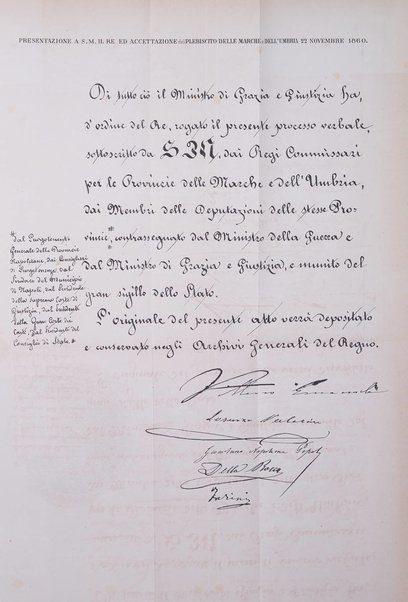 PRESENTAZIONE A S. M. IL RE ED ACCETTAZIONE del PLEBISCITO DELLE MARCHE e DELL'UMBRIA 22 NOVEMBRE 1860.
Di tutto ciò il Ministro di Grazia e Giustizia ha,
d'ordine del Re, rogato il presente processo verbale,
sottoscritto da S. M., dai Regi Commissari
per le Provincie delle Marche e dell'Umbria,
dai Membri delle Deputazioni delle stesse Pro-
vincie, contrassegnato dal Ministro della Guerra e
dal Ministro di Grazia e Giustizia, e munito del
gran sigillo dello Stato.
L'originale del presente atto verrà depositato
e conservato negli Archivi Generali del Regno.
dal Luogotenente
Generale delle Provincie
Napolitane, dai Consiglieri
di Luogotenenza, dal
Sindaco del Municipio
di Napoli, dal Presidente
della Suprema Corte di
Giustizia, dal Presidente
della Gran Corte dei
Conti, dal Presidente del
Consiglio di Stato.
Vittorio Emanuele
Lorenzo Valerio
Gioachino Napoleone Pepoli
Della Rocca
Farini